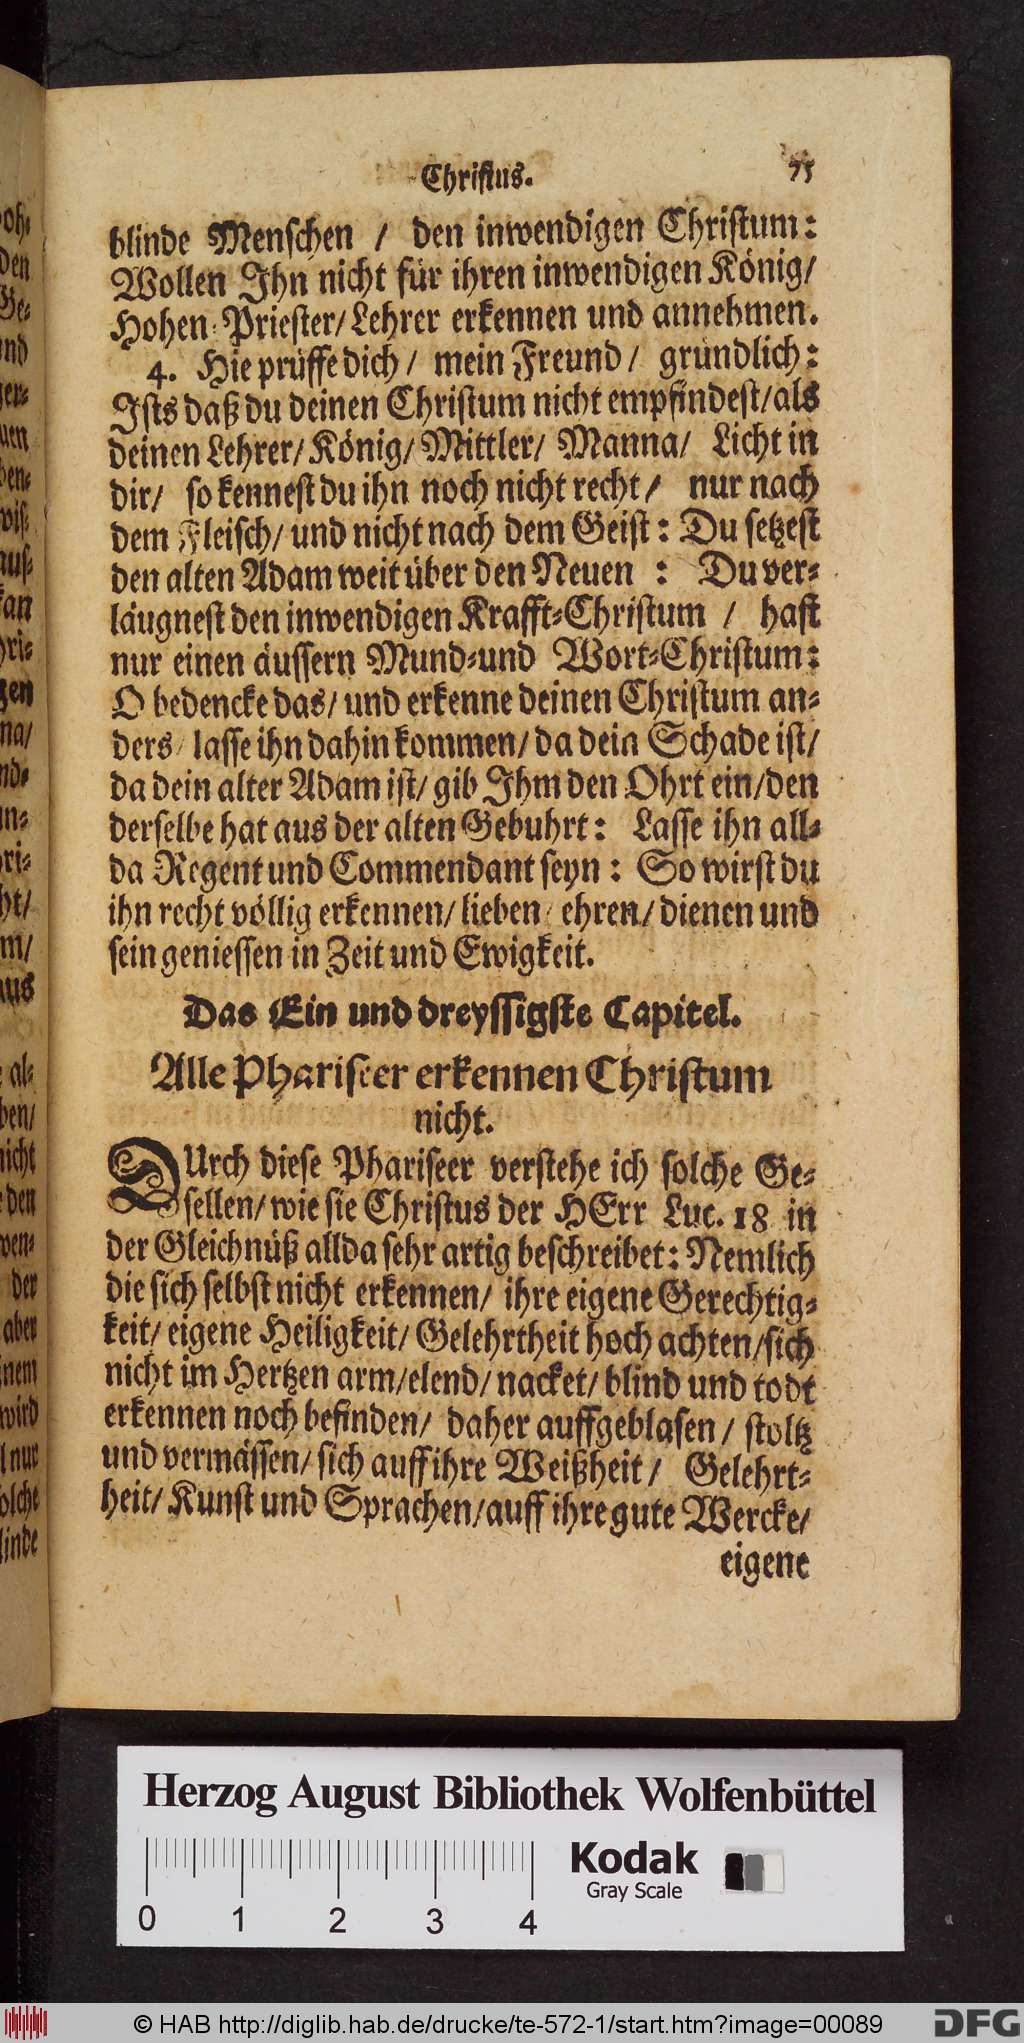 Christus. 75
blinde Menschen / den inwendigen Christum:
Wollen Ihn nicht für ihren inwendigen König/
Hohen-Priester/ Lehrer erkennen und annehmen.
4. Hie prüffe dich/ mein Freund/ gründlich:
Ists daß du deinen Christum nicht empfindest/ als
deinen Lehrer/ König/ Mittler/ Manna/ Licht in
dir/ so kennest du ihn noch nicht recht/ nur nach
dem Fleisch/ und nicht nach dem Geist: Du setzest
den alten Adam weit über den Neuen : Du ver-
läugnest den inwendigen Krafft-Christum / hast
nur einen äussern Mund-und Wort-Christum:
O bedencke das/ und erkenne deinen Christum an-
ders/ lasse ihn dahin kommen/ da dein Schade ist/
da dein alter Adam ist/ gib Ihm den Ohrt ein/ den
derselbe hat aus der alten Gebuhrt: Lasse ihn all-
da Regent und Commendant seyn: So wirst du
ihn recht völlig erkennen/ lieben/ ehren/ dienen und
sein geniessen in Zeit und Ewigkeit.
Das Ein und dreyssigste Capitel.
Alle Phariseer erkennen Christum
nicht.
DUrch diese Phariseer verstehe ich solche Ge-
sellen/ wie sie Christus der HErr Luc. 18 in
der Gleichnüß allda sehr artig beschreibet: Nemlich
die sich selbst nicht erkennen/ ihre eigene Gerechtig-
keit/ eigene Heiligkeit/ Gelehrtheit hoch achten/ sich
nicht im Hertzen arm/ elend/ nacket/ blind und todt
erkennen noch befinden/ daher auffgeblasen/ stoltz
und vermässen/ sich auff ihre Weißheit/ Gelehrt-
heit/ Kunst und Sprachen/ auff ihre gute Wercke/
eigene
Herzog August Bibliothek Wolfenbüttel
Kodak
Gray Scale
0 1 2 3 4
© HAB http://diglib.hab.de/drucke/te-572-1/start.htm?image=00089
DFG